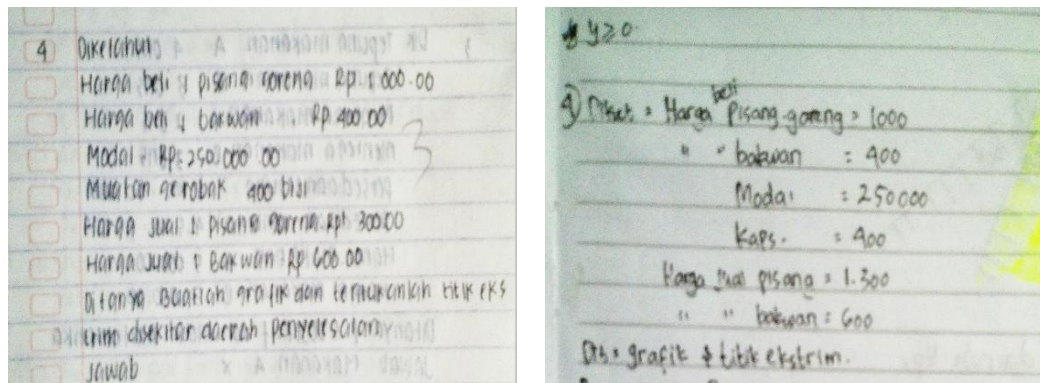 4 Diketahui
Harga beli 1 pisang goreng Rp 1.000.00
Harga beli 1 bakwan Rp 400.00
Modal Rp 250.000.00
Muatan gerobak 400 biji
Harga jual 1 pisang goreng Rp 1.300.00
Harga jual 1 Bakwan Rp 600.00
Ditanya Buatlah grafik dan tentukanlah titik eks
trim disekitar daerah penyelesaian
Jawab
y ≥ 0.
4) Diket = Harga beli pisang goreng = 1000
" " bakwan = 400
Modal = 250000
Kaps. = 400
Harga jual pisang = 1.300
" " bakwan = 600
Dit = grafik & titik ekstrim.